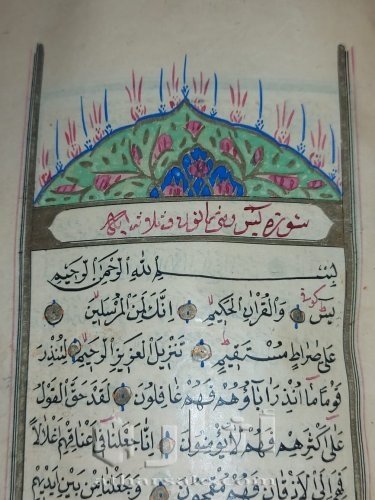 سورة يس وهى ثمانون وثلاث آية
بسم الله الرحمن الرحيم
يس والقرآن الحكيم انك لمن المرسلين
على صراط مستقيم تنزيل العزيز الرحيم لتنذر
قوما ما انذر اباؤهم فهم غافلون لقد حق القول
على اكثرهم فهم لا يؤمنون انا جعلنا فى اعناقهم اغلالا
فهى الى الاذقان فهم مقمحون وجعلنا من بين ايديهم